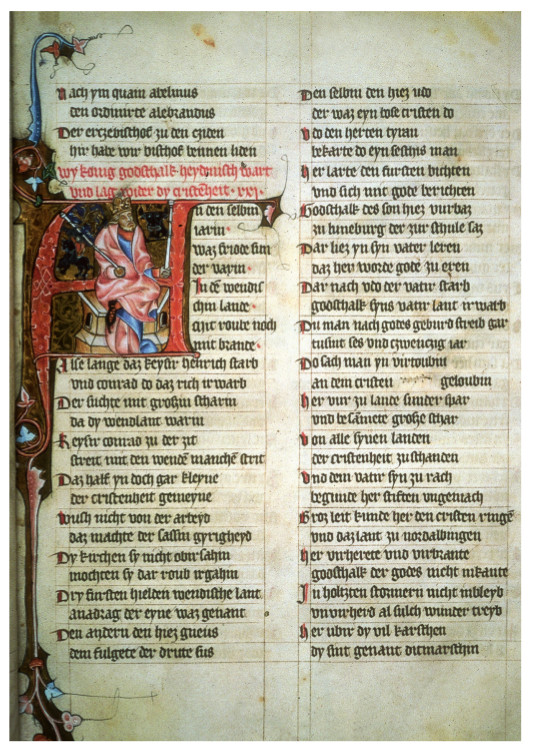 Nach ym quam abelinus
den ordinirte alebrandus
Der erczebischof zu den cziden
hir habe wir bischof bennen liden
wy konig godschalk heydenisch wart
vnd lag wider dy cristēheit · xxj ·
In den selbin
iarin
waz friode sin
der varin
In dē wendis
chin lande
nit roube noch
mit brande
Alse lange daz keysir henrich starb
vnd conrad do daz rich irwarb
Der suchte mit grozin scharin
da dy wendlant warin
Keysir conrad zu der zit
streit mit den wendē manchē strit
Daz half yn doch gar kleyne
der cristenheit gemeyne
wusch nicht von der arbeyd
daz machte der sassin gyrigheyd
Dy kirchen sy nicht obir sahin
mochten sy dar roub irgahin
Dry fursten hielden wendische lant
anadrag der eyne waz genant
Den andern den hiez gneus
dem fulgete der dritte sus
Den selbin den hiez vdo
der waz eyn bose cristen do
Vdo den herren tyran
bekarte do eyn seschis man
her larte den fursten bichten
vnd sich mit gode berichten
Godschalk des son hiez vurbaz
zu luneburg der zur schule saz
Dar liez yn syn vater leren
daz her worde gode zu eren
Dar nach vdo der vatir starb
godschalk syns vatir lant irwarb
Du man nach godes geburd screib gar
tusint ses vnd czwenczig iar
Do sach man yn virtoubin
an dem cristen geloubin
her vur zu lande sunder spar
vnd besāmete groze schar
von alle synen landen
der cristenheit zu schanden
Vnd dem vatir syn zu rach
begunde her stiften vngemach
Groz leit kunde her den cristen ringē
vnd daz lant zu nordalbingen
her virherete vnd virbrante
godschalk der godes nicht irkante
In holtzten stormern nicht inbleyb
vnvirherd al sulch wunder treyb
her vbir dy vil karschen
dy sint genant ditmarschin